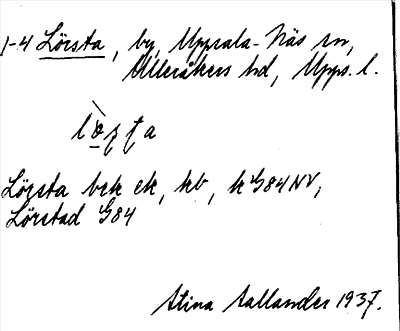 1-4 Lörsta, by, Uppsala-Näs sn,
Ulleråkers hd, Upps. l.
Lörsta bek ek, kb, k G84 NV,
Lörstad G84
Stina Sallander 1937.